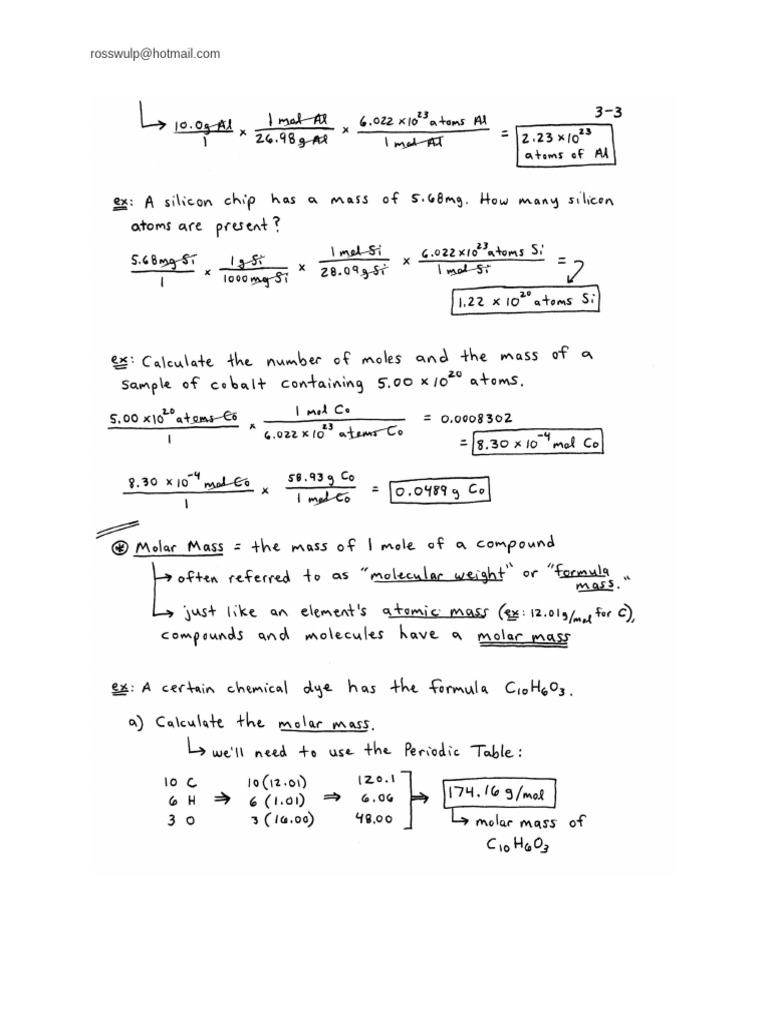 rosswulp@hotmail.com
3-3
↳ 10.0g Al/1 × 1 mol Al/26.98 g Al × 6.022 ×10^23 atoms Al/1 mol Al = 2.23 ×10^23 atoms of Al
ex: A silicon chip has a mass of 5.68mg. How many silicon
atoms are present?
5.68mg Si/1 × 1 g Si/1000 mg Si × 1 mol Si/28.09 g Si × 6.022×10^23 atoms Si/1 mol Si =
1.22 × 10^20 atoms Si
ex: Calculate the number of moles and the mass of a
sample of cobalt containing 5.00 ×10^20 atoms.
5.00 ×10^20 atoms Co/1 × 1 mol Co/6.022 ×10^23 atoms Co = 0.0008302
= 8.30 × 10^-4 mol Co
8.30 ×10^-4 mol Co/1 × 58.93 g Co/1 mol Co = 0.0489 g Co
⊛ Molar Mass = the mass of 1 mole of a compound
↳ often referred to as "molecular weight" or "formula
mass."
↳ just like an element's atomic mass (ex: 12.01g/mol for C),
compounds and molecules have a molar mass
ex: A certain chemical dye has the formula C10H6O3.
a) Calculate the molar mass.
↳ we'll need to use the Periodic Table:
10 C 10(12.01) 120.1
6 H ⇒ 6 (1.01) ⇒ 6.06 ⇒ 174.16 g/mol
3 O 3(16.00) 48.00 ↳ molar mass of
C10H6O3